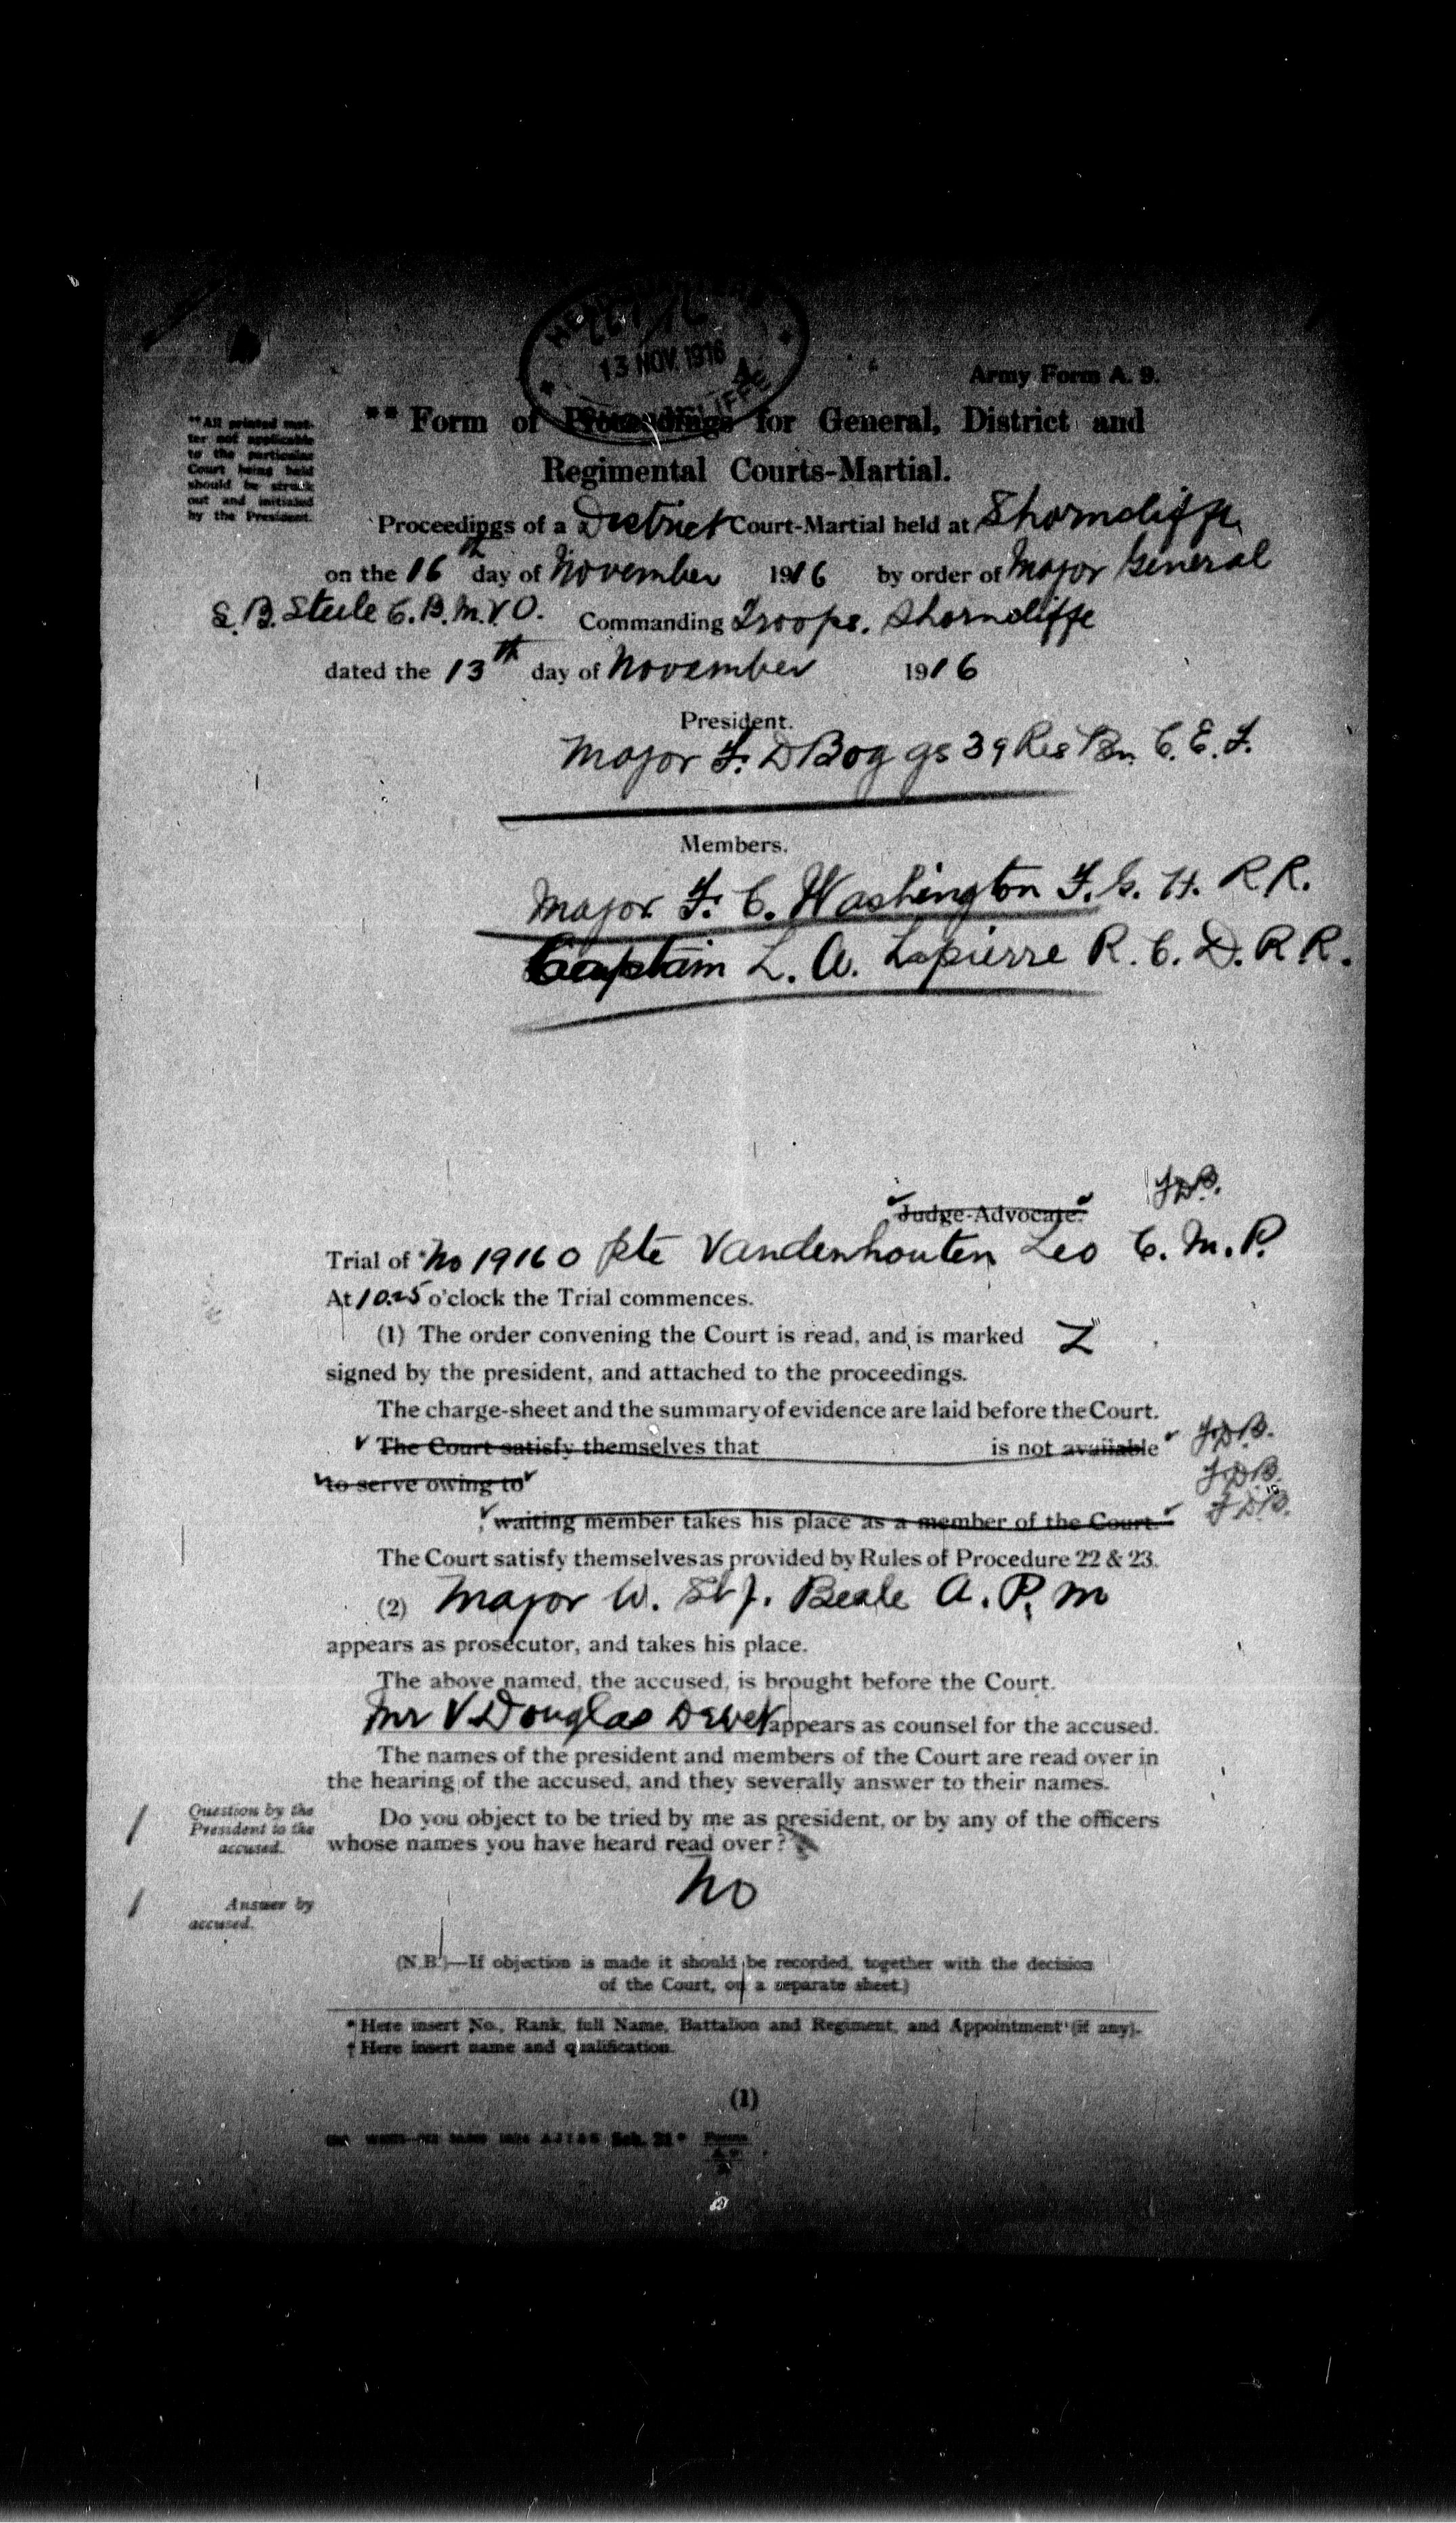 HEADQUARTERS
13 NOV. 1916
SHORNCLIFFE
Army Form A. 9.
** Form of Proceedings for General, District and
Regimental Courts-Martial.
**All printed mat-
ter not applicable
to the particular
Court being held
should be struck
out and initialed
by the President.
Proceedings of a District Court-Martial held at Shorncliffe
on the 16th day of November 1916 by order of Major General
S. B. Steele C. B. M. V. O. Commanding Troops. Shorncliffe
dated the 13th day of November 1916
President.
Major F. D Boggs 39 Res Bn. C. E. F.
Members.
Major F. C. Washington F. G. H. R R.
Captain L. A. Lapierre R. C. D. R R.
Judge-Advocate. FDB.
Trial of *No 19160 Pte Vandenhouten Leo C. M. P.
At 10.25 o'clock the Trial commences.
(1) The order convening the Court is read, and is marked Z
signed by the president, and attached to the proceedings.
The charge-sheet and the summary of evidence are laid before the Court.
The Court satisfy themselves that is not available FDB.
to serve owing to FDB.
waiting member takes his place as a member of the Court. FDB.
The Court satisfy themselves as provided by Rules of Procedure 22 & 23.
(2) Major W. St J. Beale A. P. M
appears as prosecutor, and takes his place.
The above named, the accused, is brought before the Court.
Mr V. Douglas appears as counsel for the accused.
The names of the president and members of the Court are read over in
the hearing of the accused, and they severally answer to their names.
Question by the
President to the
accused.
Do you object to be tried by me as president, or by any of the officers
whose names you have heard read over?
No
Answer by
accused.
(N.B.)—If objection is made it should be recorded, together with the decision
of the Court, on a separate sheet.)
* Here insert No., Rank, full Name, Battalion and Regiment, and Appointment (if any).
† Here insert name and qualification.
(1)
Sch. 21
Forms